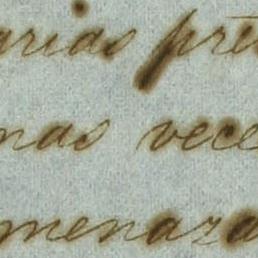 arias pre
nas vece
menaza